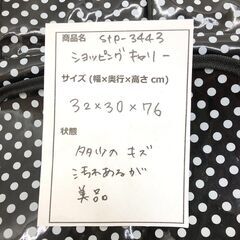 商品名 stp-3443
ショッピングキャリー
サイズ (幅×奥行×高さ cm)
32×30×76
状態
多少のキズ
汚れあるが
美品